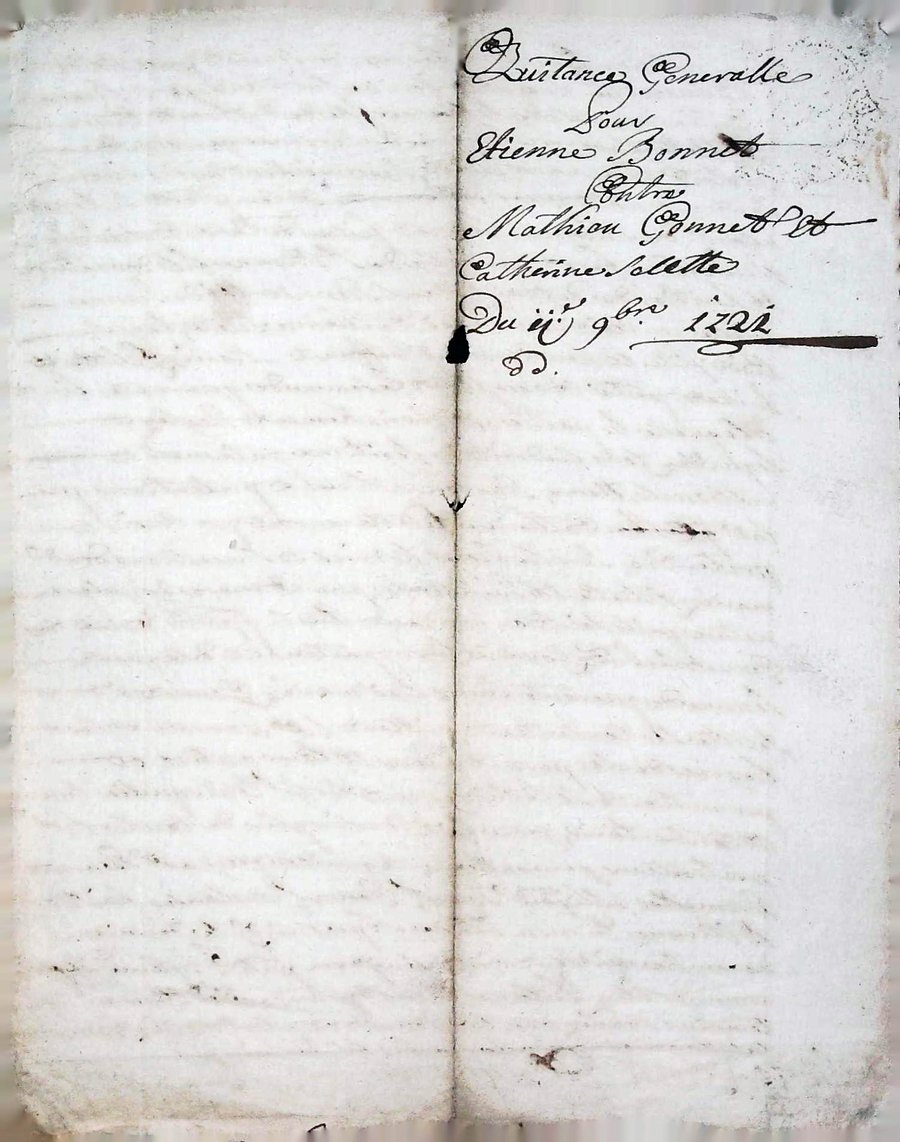 Quitance Generalle
Pour
Etienne Bonnet
Contre
Mathieu Gonnet Et
Catherine Solette
Du 11e 9bre 1721